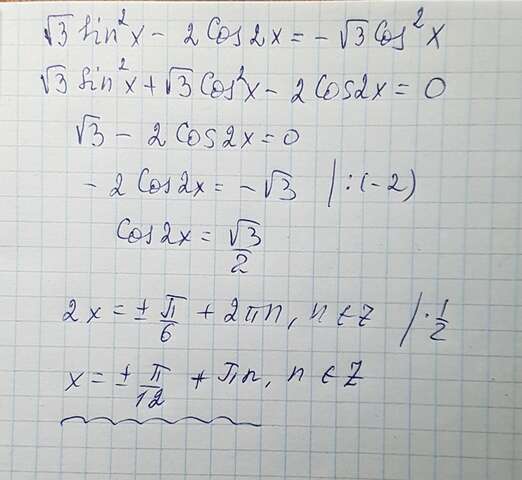 √3 sin²x - 2cos2x = -√3 cos²x
√3 sin²x + √3 cos²x - 2cos2x = 0
√3 - 2cos2x = 0
- 2cos2x = -√3 | :(-2)
cos2x = √3/2
2x = ± π/6 + 2πn, n ∈ Z | · 1/2
x = ± π/12 + πn, n ∈ Z